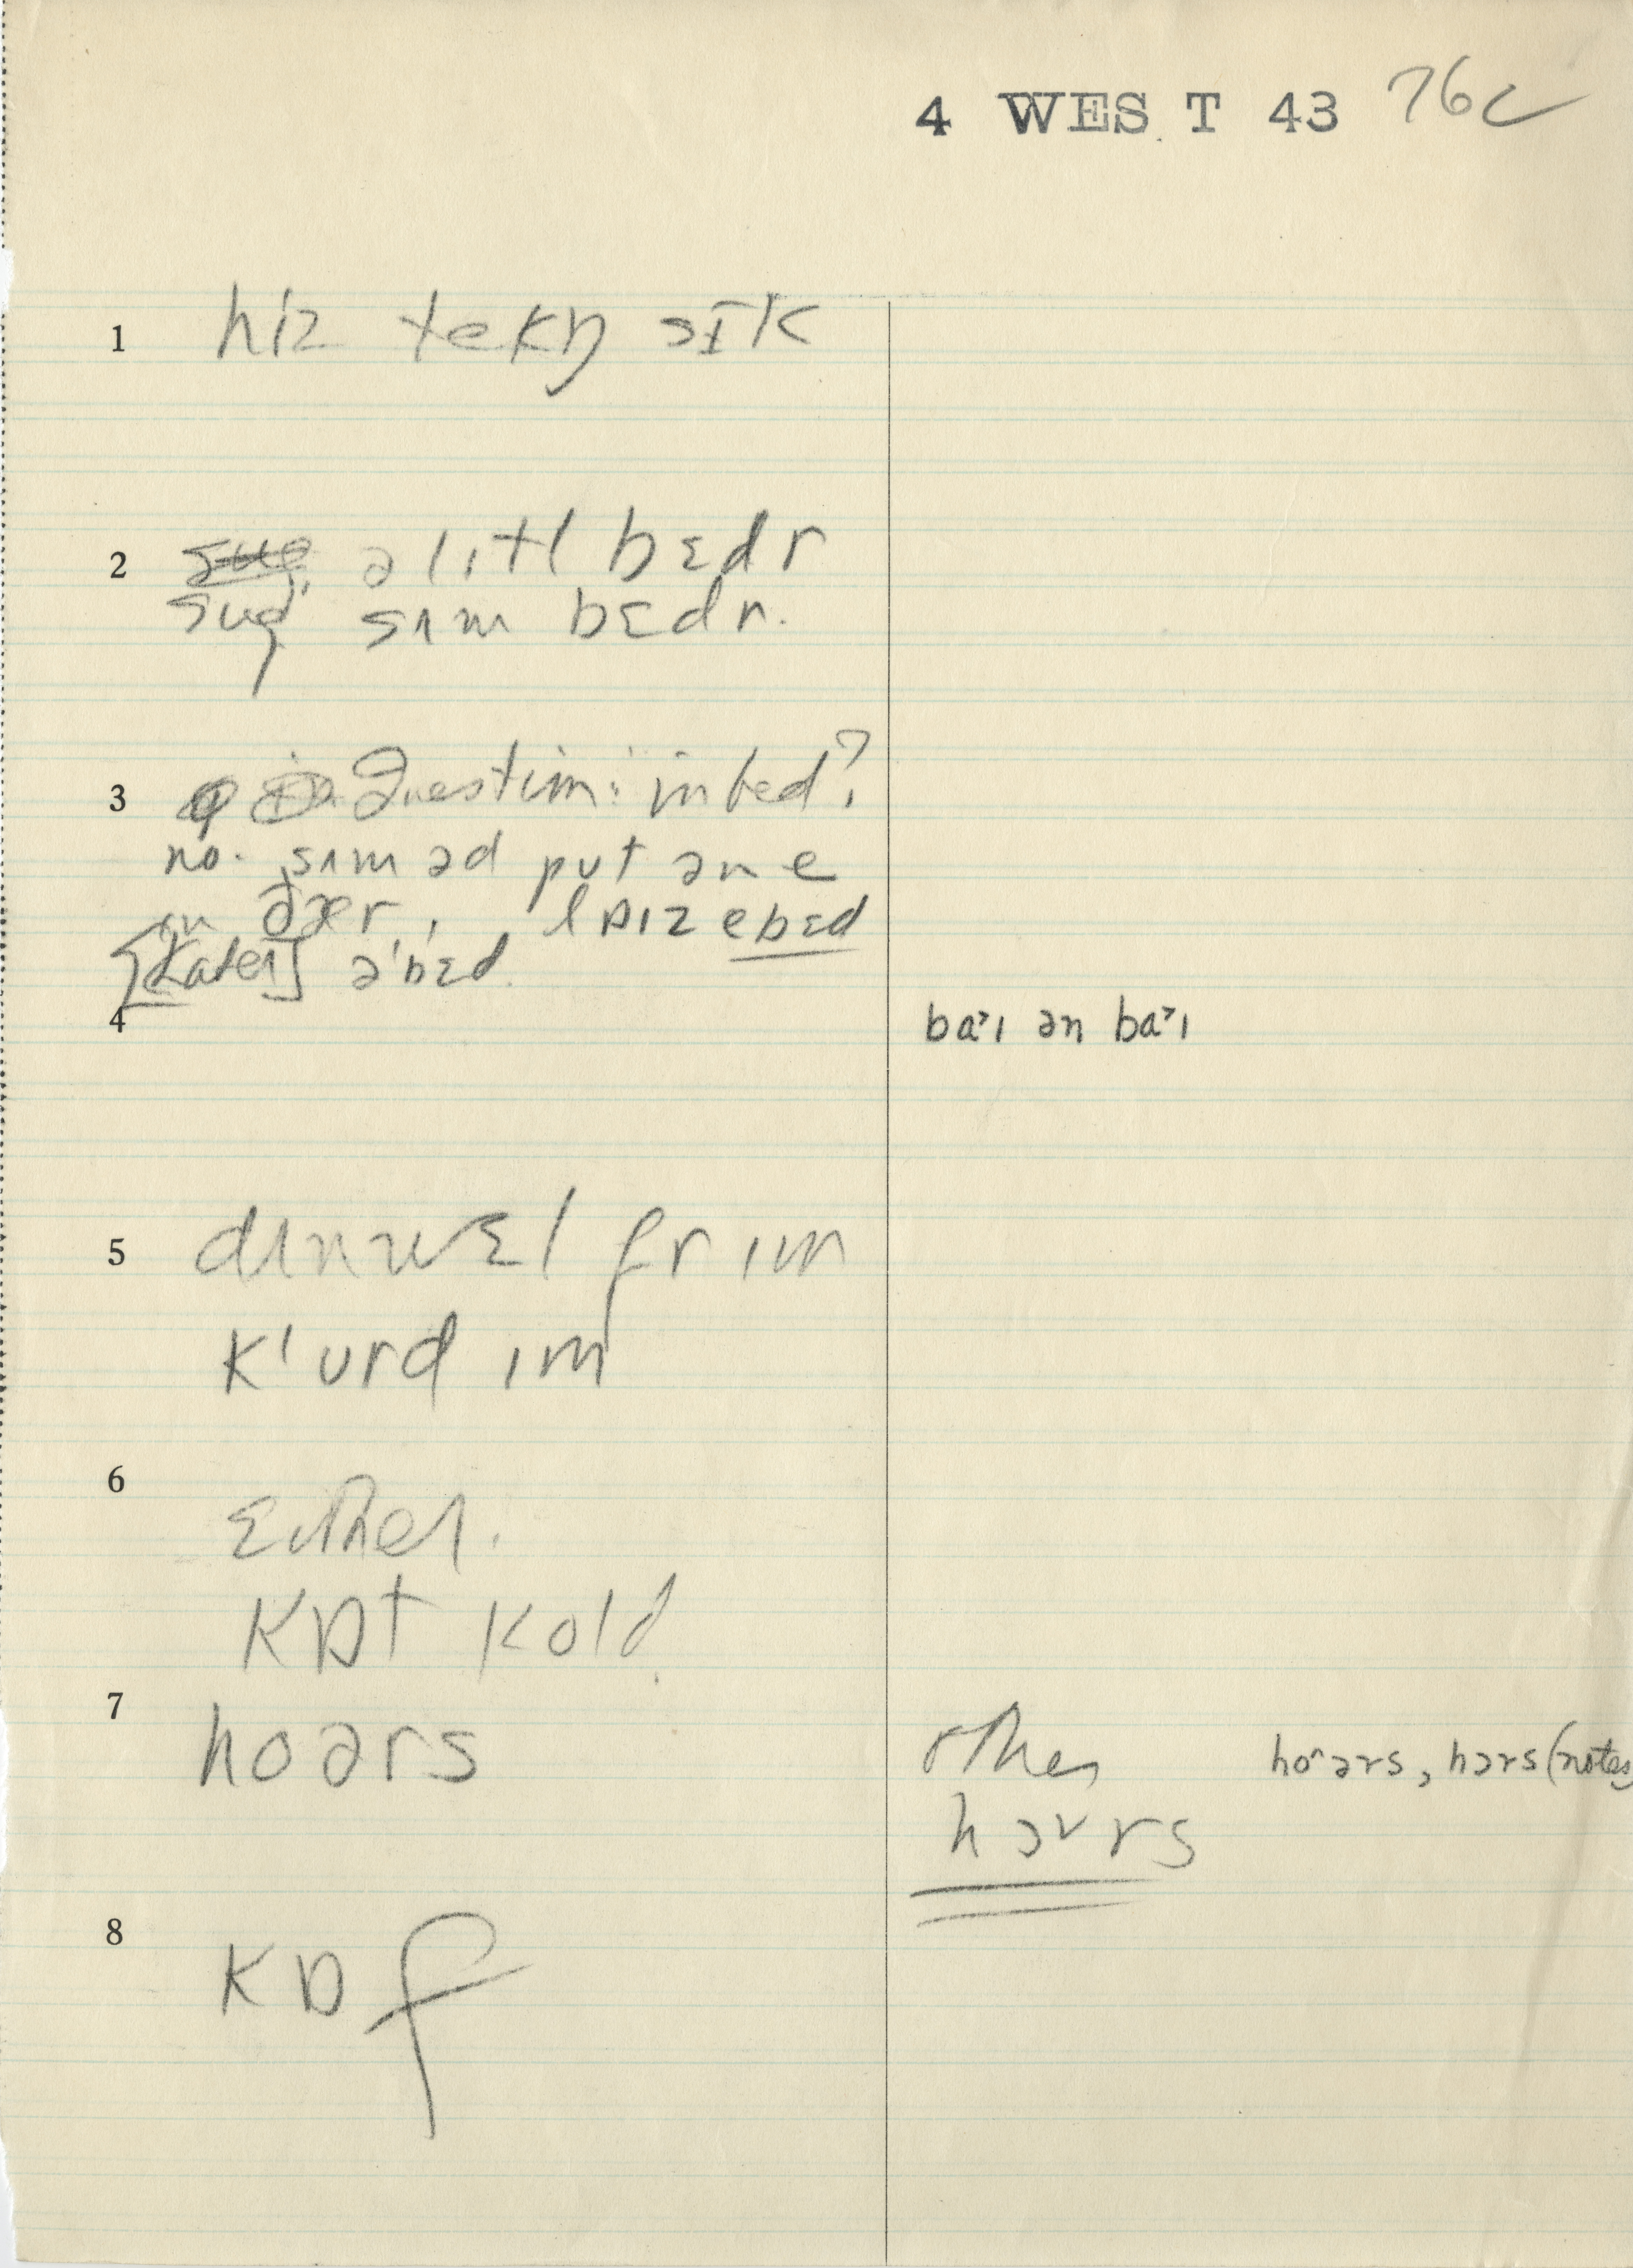 4 WEST 43 76c
1 hiz tekŋ sɪk
2 ə lɪtl bɛdr
sug sʌm bɛdr.
3 Question: in bed?
no. sʌm əd put ən e
in ðær, lɒɪz ebɛd
[Later] ə'bɛd.
4 baˑɪ ən baˑɪ
5 dʌn wɛl fr ɪm
k'urd ɪm
6 Either.
kɒt kold
7 hoərs other ho^ərs, hɔrs (notes
hɔvrs
8 kɒf